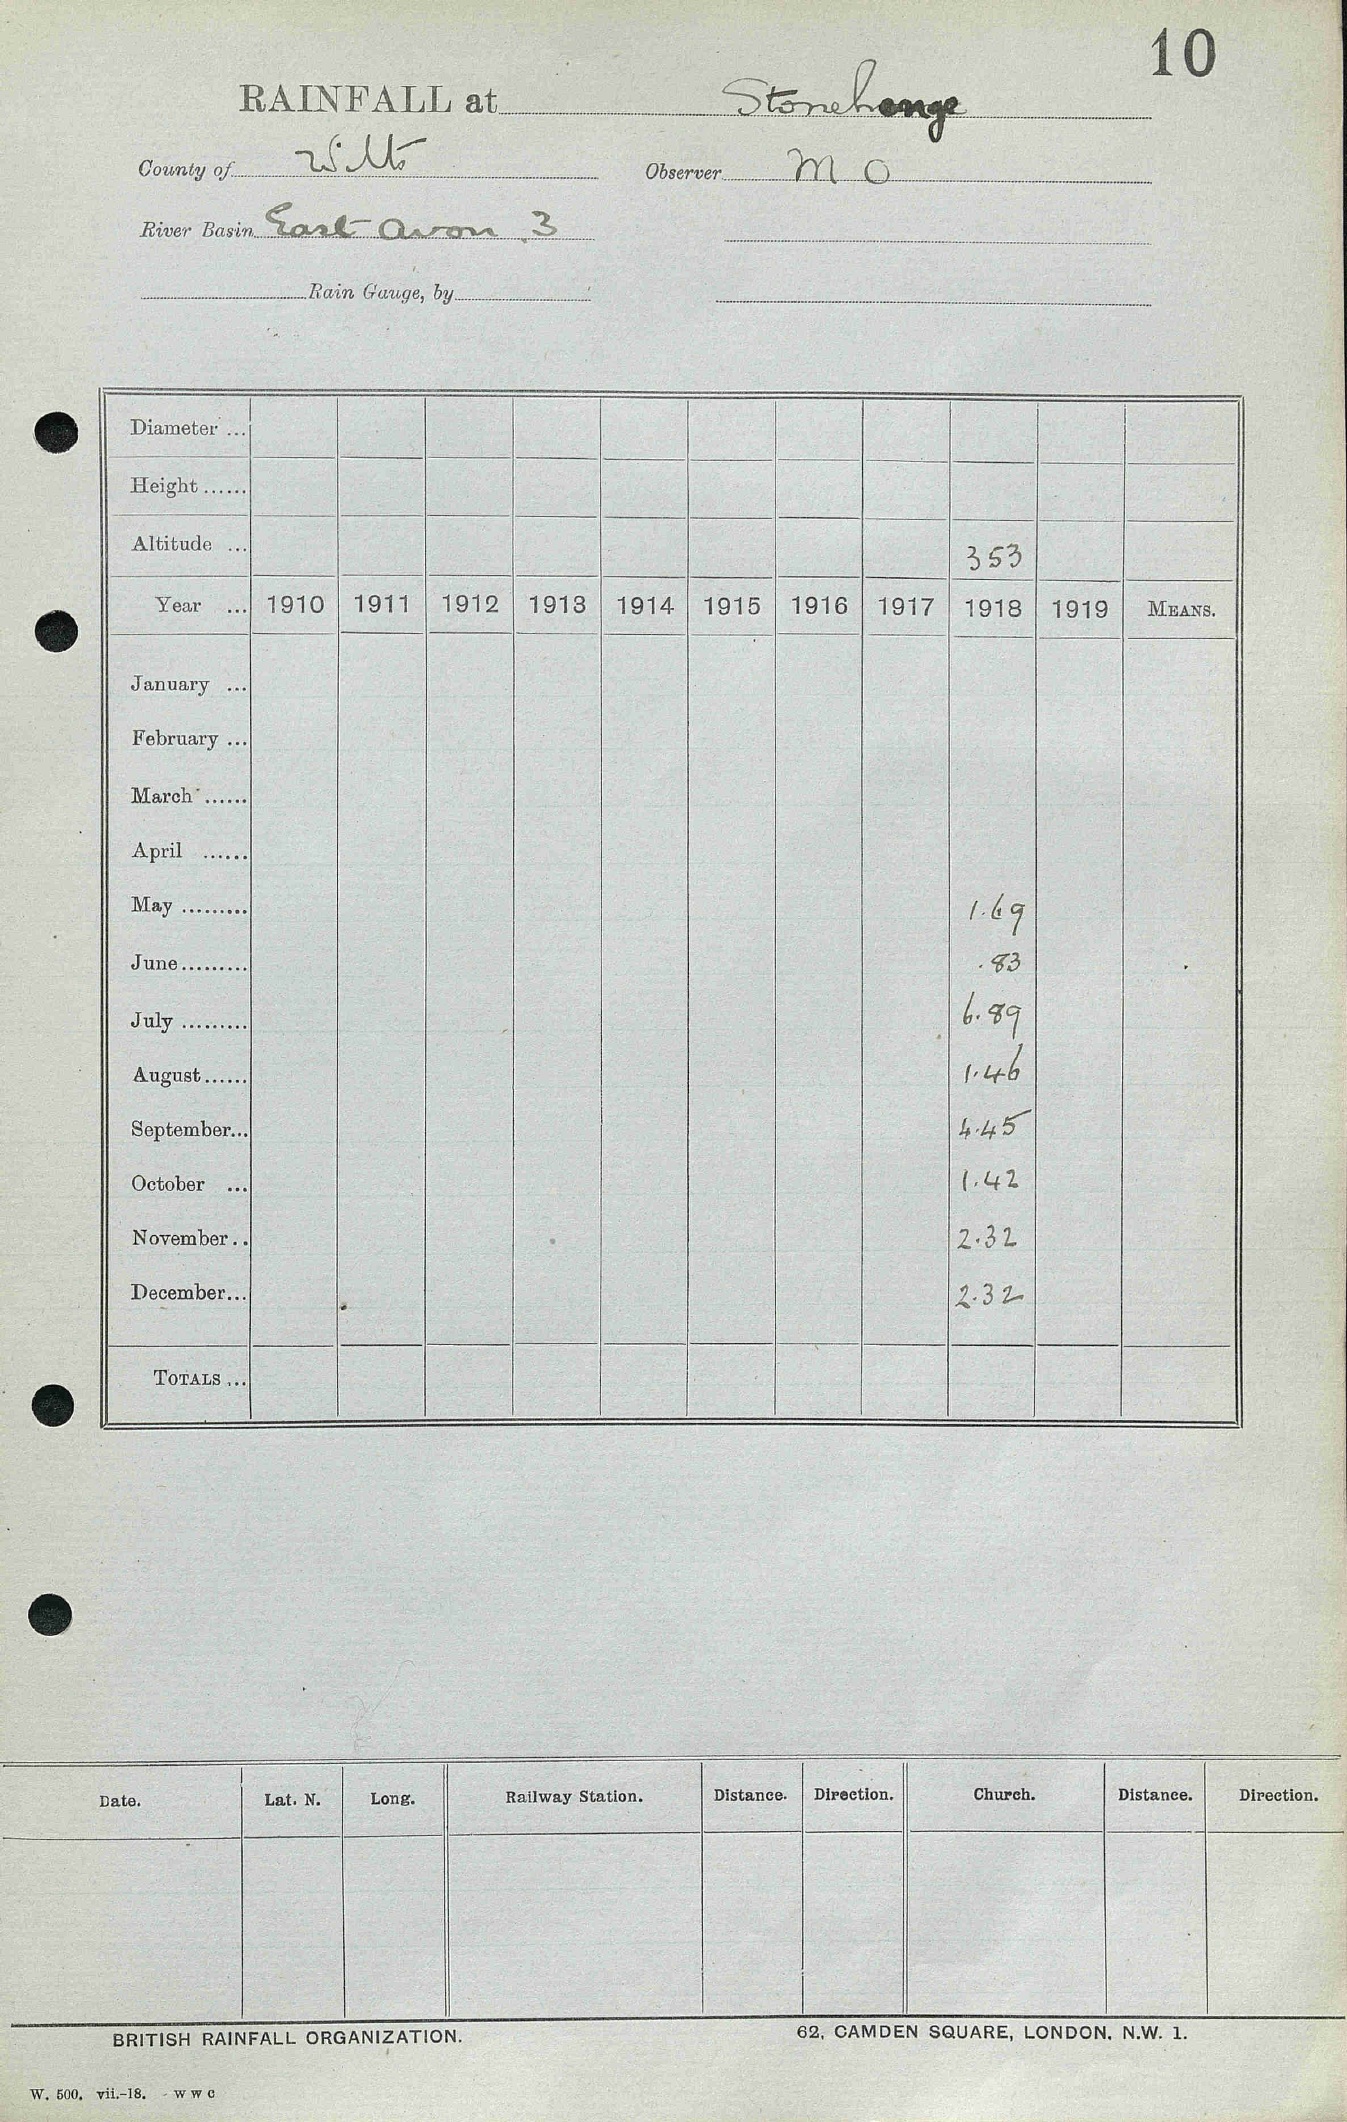 10
RAINFALL at Stonehenge
County of Wilts Observer M O
River Basin East Avon 3
Rain Gauge, by
Diameter ...
Height ......
Altitude ... 353
Year ... 1910 1911 1912 1913 1914 1915 1916 1917 1918 1919 MEANS.
January ...
February ...
March ......
April ......
May ......... 1.69
June ......... .83
July ......... 6.89
August ...... 1.46
September... 4.45
October ... 1.42
November .. 2.32
December... 2.32
TOTALS ...
Date. Lat. N. Long. Railway Station. Distance. Direction. Church. Distance. Direction.
BRITISH RAINFALL ORGANIZATION. 62, CAMDEN SQUARE, LONDON. N.W. 1.
W. 500. vii.-18. - W W C